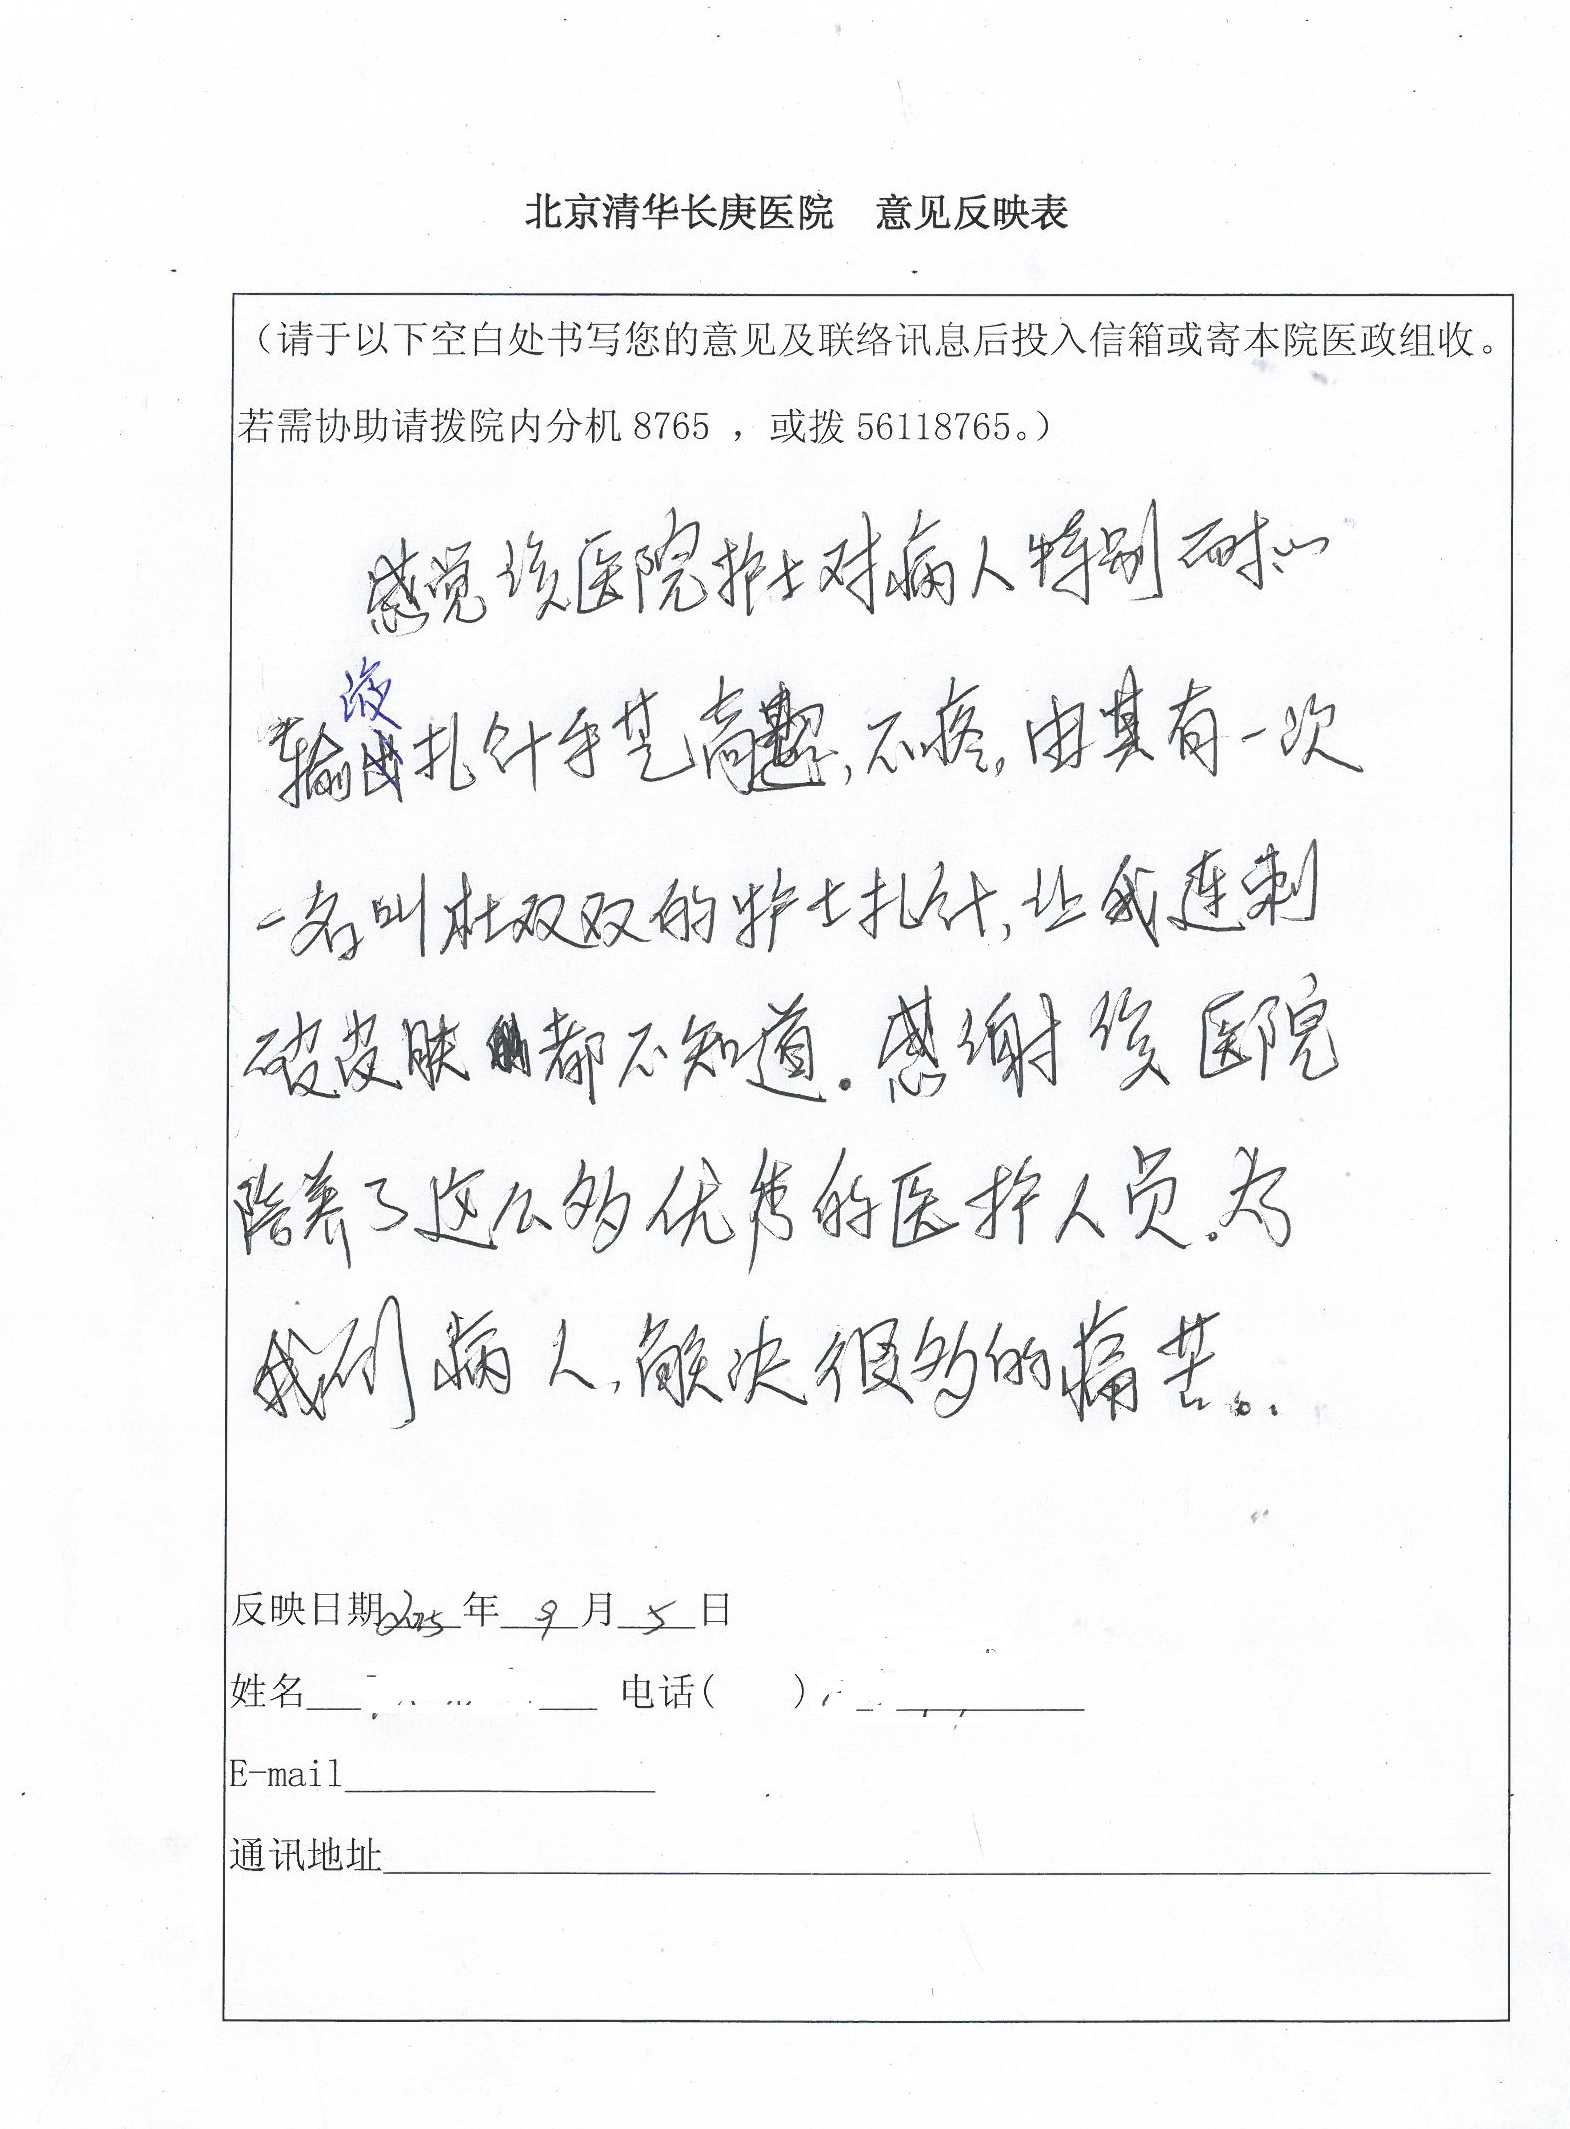 北京清华长庚医院 意见反映表
（请于以下空白处书写您的意见及联络讯息后投入信箱或寄本院医政组收。
若需协助请拨院内分机 8765 ，或拨 56118765。）
感觉该医院护士对病人特别耐心
输液扎针手艺高超，不疼，由其有一次
一名叫杜双双的护士扎针，让我连刺
破皮肤都不知道．感谢该医院
陪养了这么多优秀的医护人员．为
我们病人，解决很多的痛苦。
反映日期2025年 9 月 5 日
姓名 电话( )
E-mail
通讯地址